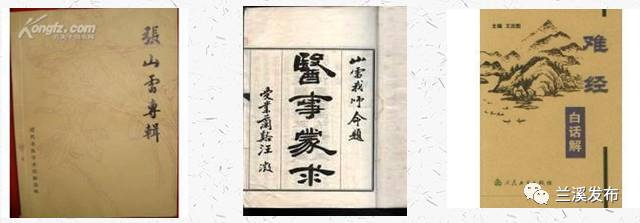 Kongfz.com
張山雷專輯
山雷我师命題
醫事蒙求
受業蘭谿汪澂
主编 王洪图
难经
白话解
人民卫生出版社
兰溪发布